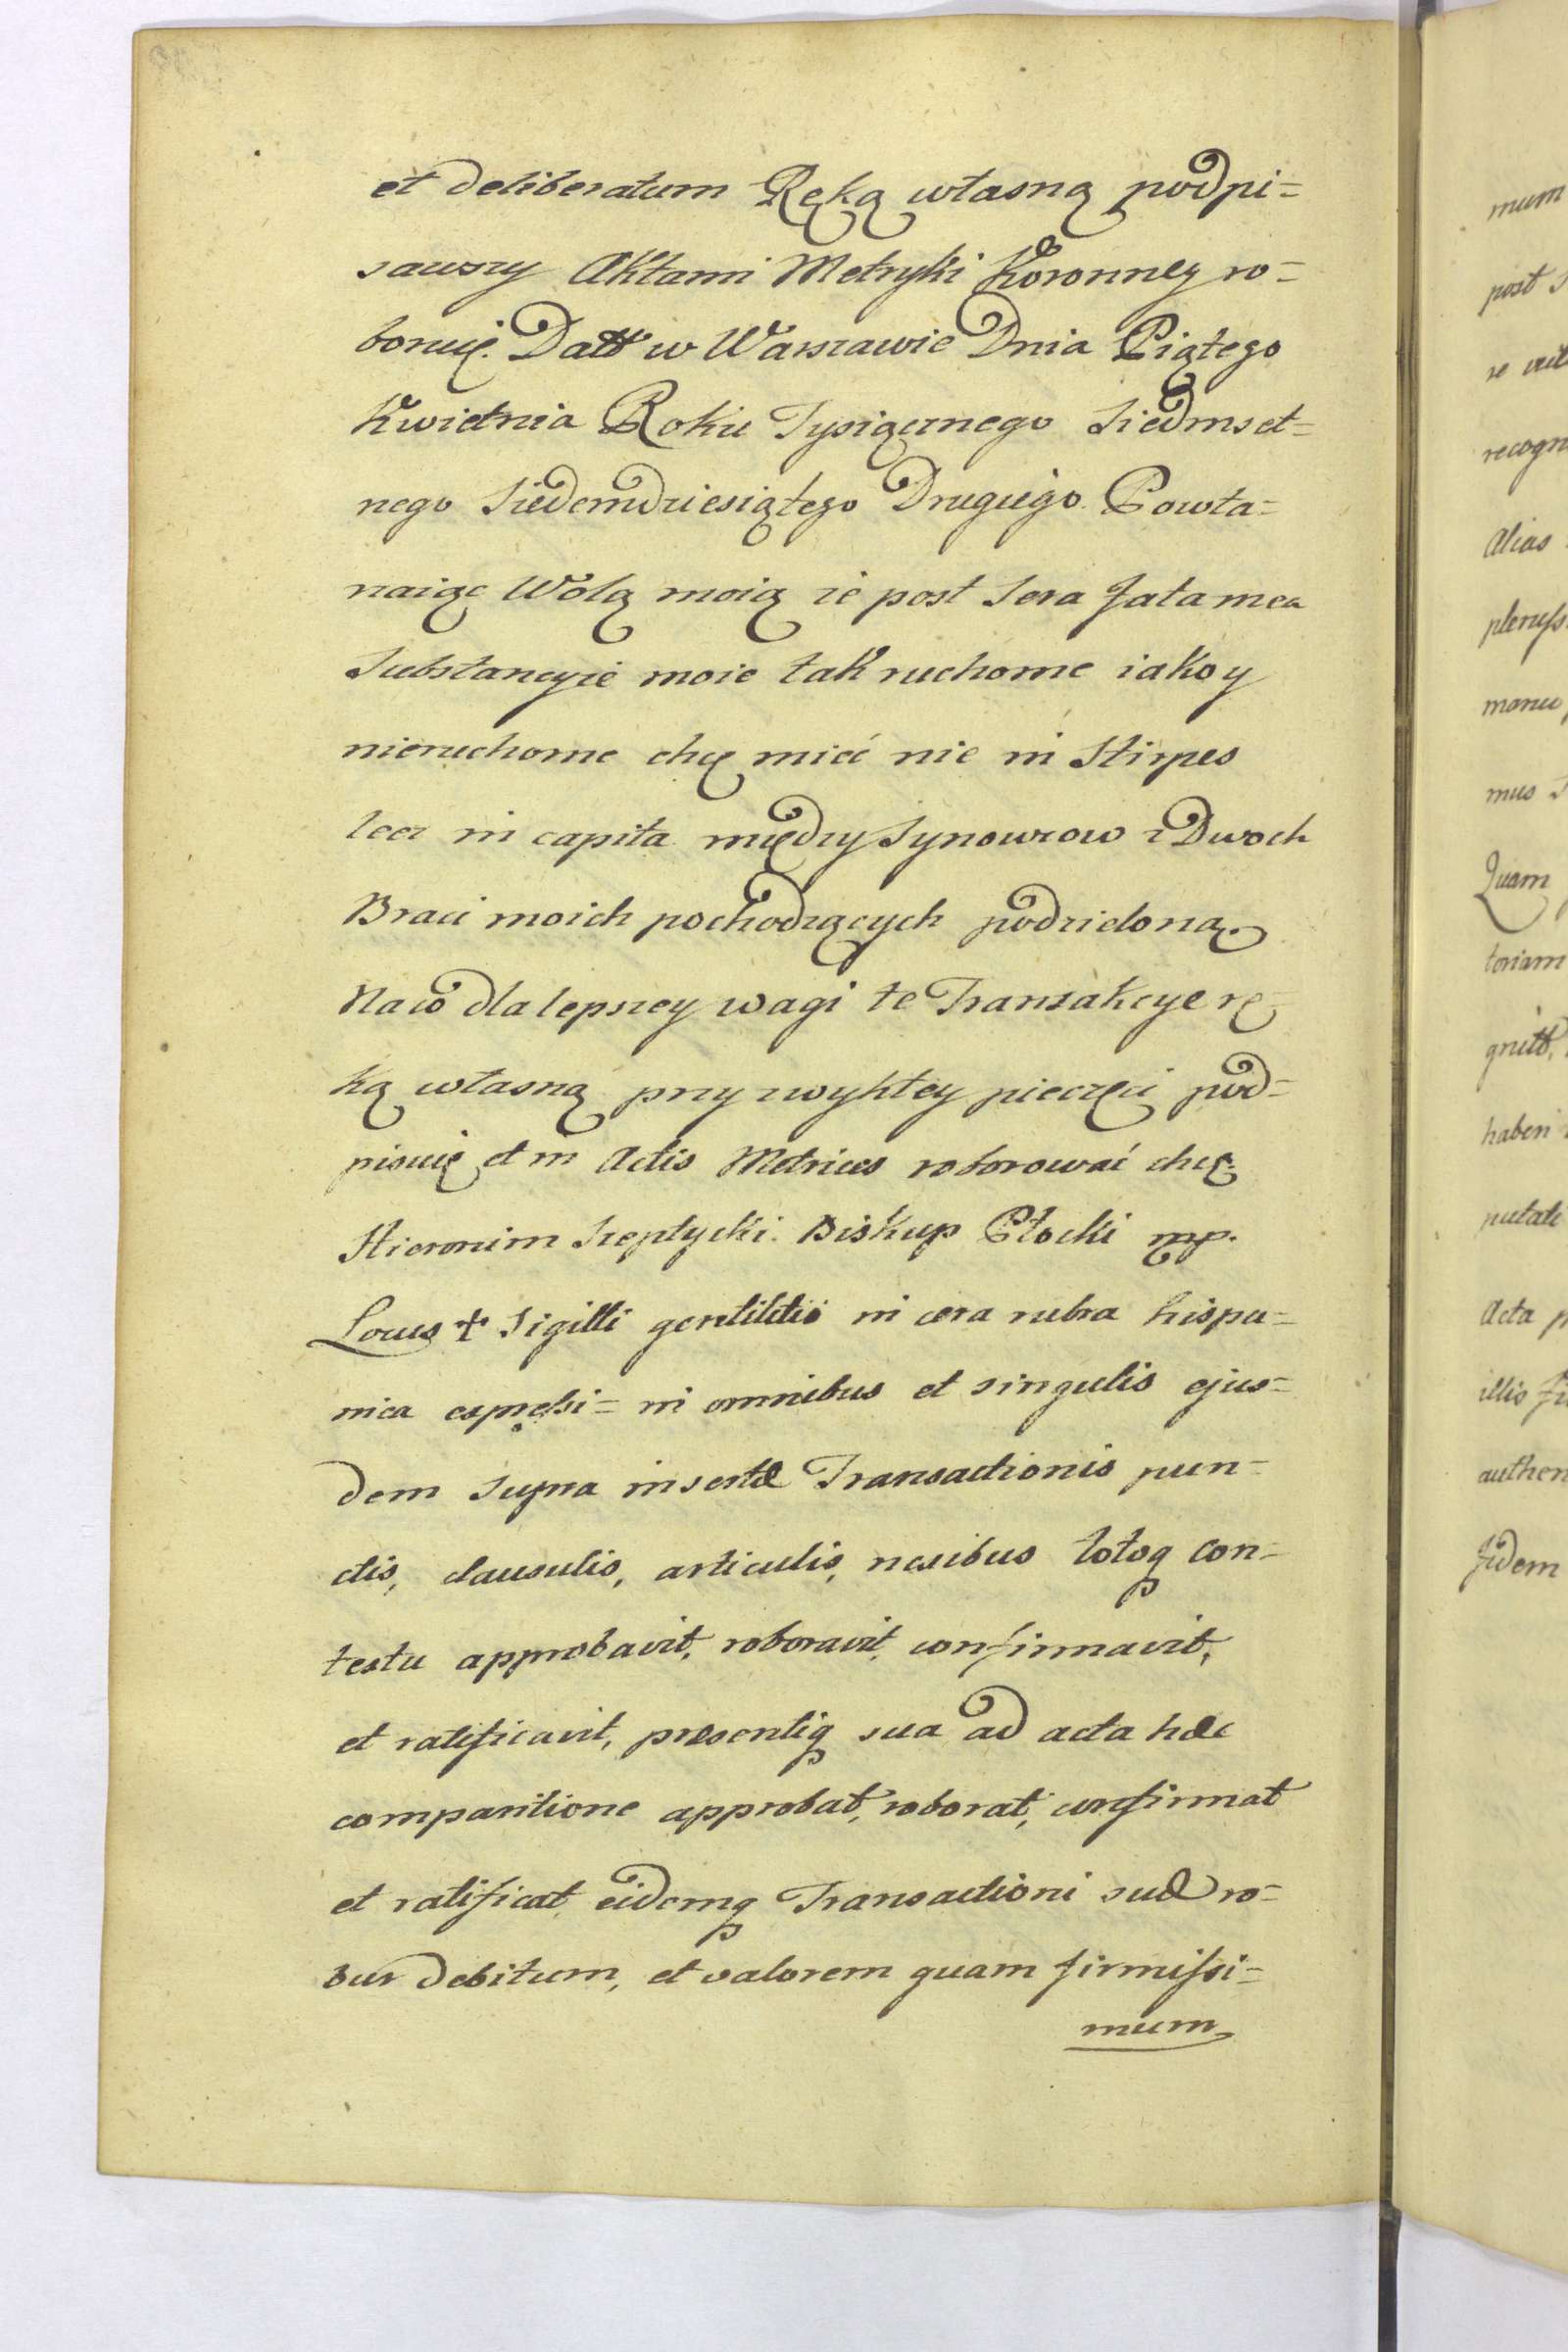 et deliberatum Ręką własną podpi=
sawszy Aktami Metryki Koronney ro=
boruię. Datt w Warszawie Dnia Piątego
Kwietnia Roku Tysiącznego Siedmset=
nego Siedemdziesiątego Drugiego. Powta=
rzaiąc Wolą moią że post Sera fata mea
Substancyie moie tak ruchome iako y
nieruchome chcę mieć nie in Stirpes
lecz in capita między Synowcow z Dwoch
Braci moich pochodzących podzieloną.
Na co dla lepszey wagi te Transakcye rę
ką własną przy zwykłey pieczęci pod=
pisuię et in Actis Metrices roborować chcę.
Hieronim Szeptycki. Biskup Płocki mp.
Locus + Sigilli gentilitii in cera rubra hispa=
nica expressi = in omnibus et singulis ejus=
dem supra insertæ Transactionis pun=
ctis, clausulis, articulis, nexibus totoq con=
textu approbavit, roboravit, confirmavit,
et ratificavit, præsentiq sua ad acta hæc
comparitione approbat, roborat, confirmat
et ratificat, eidemq Transactioni suæ ro=
bur debitum, et valorem quam firmissi=
mum
mum
post
recogn
Alias
pleniss
manu
mus
Quam
toriam
gnitt,
haberi
putate
Acta
illis
authen
fidem